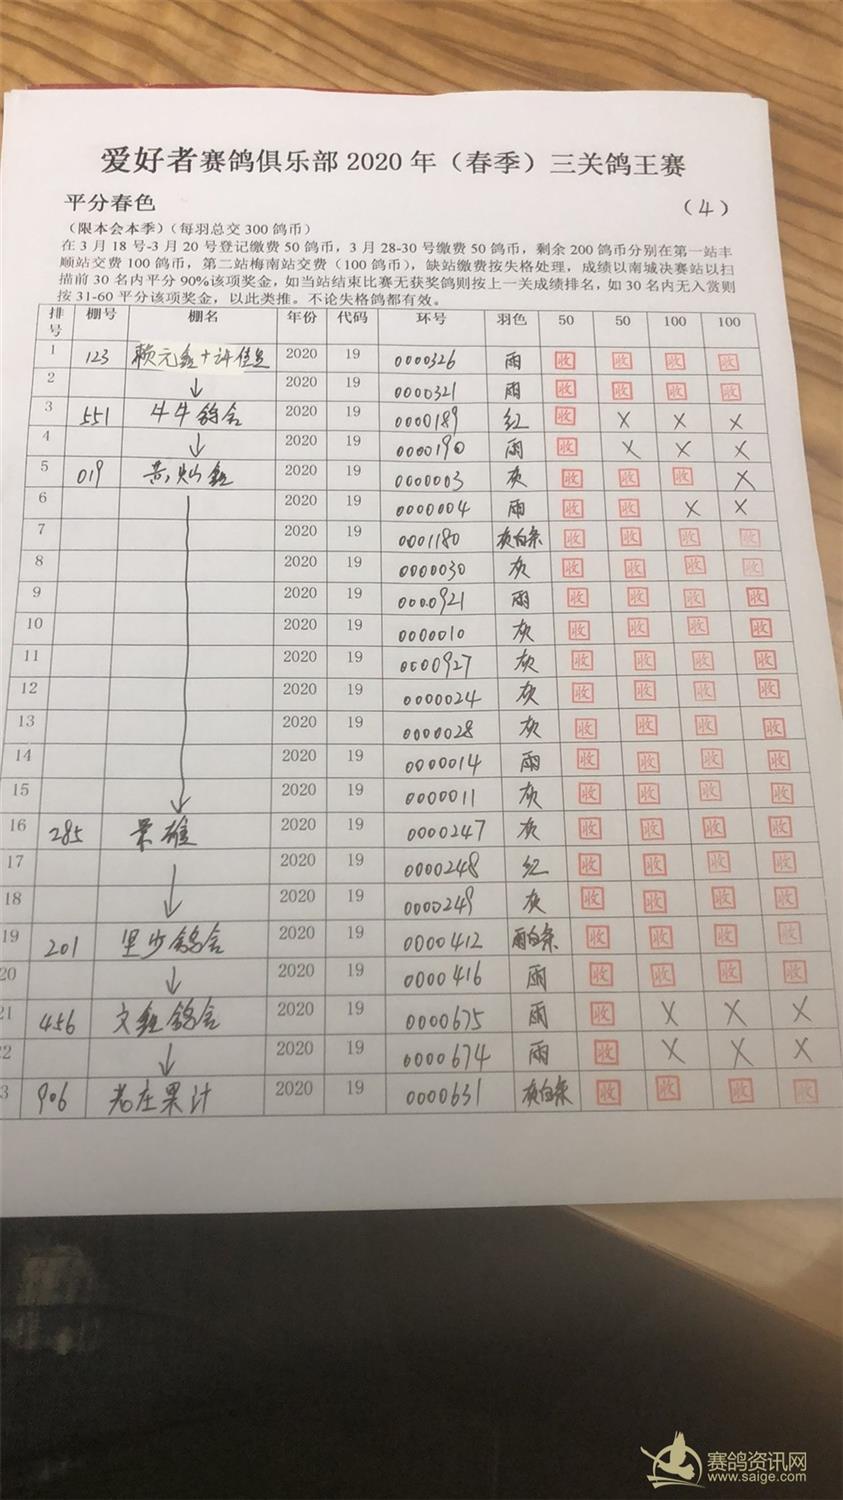 爱好者赛鸽俱乐部 2020 年（春季）三关鸽王赛
平分春色 （4）
（限本会本季）（每羽总交 300 鸽币）
在 3 月 18 号-3 月 20 号登记缴费 50 鸽币，3 月 28-30 号缴费 50 鸽币，剩余 200 鸽币分别在第一站丰
顺站交费 100 鸽币，第二站梅南站交费（100 鸽币），缺站缴费按失格处理，成绩以南城决赛站以扫
描前 30 名内平分 90%该项奖金，如当站结束比赛无获奖鸽则按上一关成绩排名，如 30 名内无入赏则
按 31-60 平分该项奖金，以此类推。不论失格鸽都有效。
排号 棚号 棚名 年份 代码 环号 羽色 50 50 100 100
1 123 赖元鑫+许佳 2020 19 0000326 雨 收 收 收 收
2 ↓ 2020 19 0000321 雨 收 收 收 收
3 551 牛牛鸽舍 2020 19 0000189 红 收 X X X
4 ↓ 2020 19 0000190 雨 收 X X X
5 019 灿鑫 2020 19 0000003 灰 收 收 收 X
6 2020 19 0000004 雨 收 收 X X
7 2020 19 0001180 灰白条 收 收 收 收
8 2020 19 0000030 灰 收 收 收 收
9 2020 19 0000921 雨 收 收 收 收
10 2020 19 0000010 灰 收 收 收 收
11 2020 19 0000927 灰 收 收 收 收
12 2020 19 0000024 灰 收 收 收 收
13 2020 19 0000028 灰 收 收 收 收
14 2020 19 0000014 雨 收 收 收 收
15 ↓ 2020 19 0000011 灰 收 收 收 收
16 285 雄 2020 19 0000247 灰 收 收 收 收
17 2020 19 0000248 红 收 收 收 收
18 ↓ 2020 19 0000249 灰 收 收 收 收
19 201 里步鸽舍 2020 19 0000412 雨白条 收 收 收 收
20 ↓ 2020 19 0000416 雨 收 收 收 收
21 456 文鑫鸽舍 2020 19 0000675 雨 收 X X X
22 ↓ 2020 19 0000674 雨 收 X X X
3 906 老庄果汁 2020 19 0000631 灰白条 收 收 收 收
赛鸽资讯网
www.saige.com